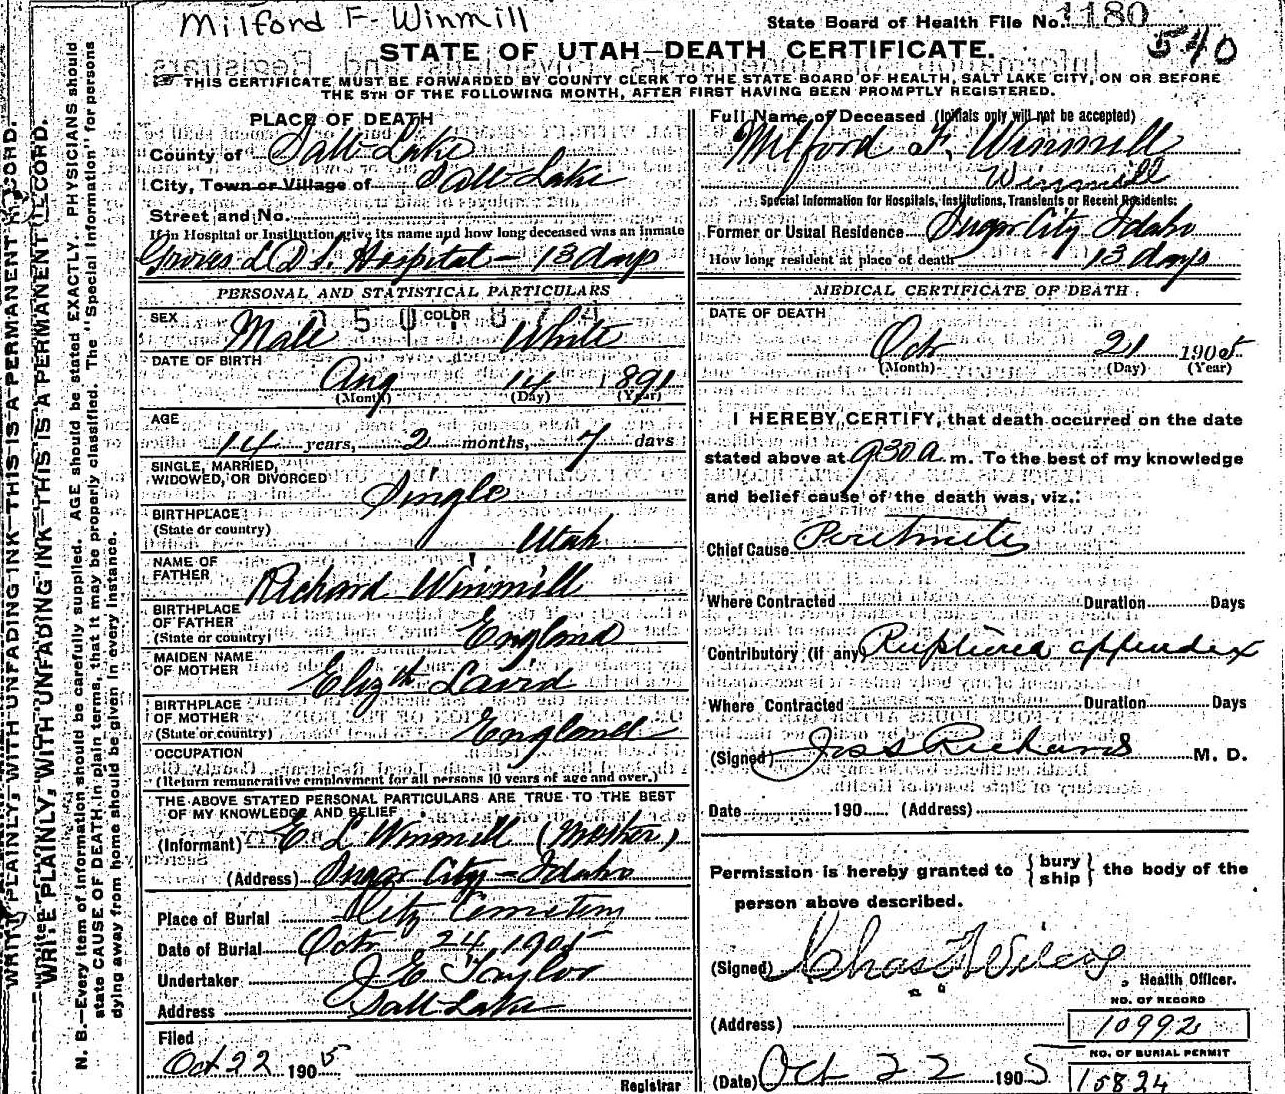 Milford F. Winmill
State Board of Health File No. 1180
540
STATE OF UTAH—DEATH CERTIFICATE.
THIS CERTIFICATE MUST BE FORWARDED BY COUNTY CLERK TO THE STATE BOARD OF HEALTH, SALT LAKE CITY, ON OR BEFORE
THE 5TH OF THE FOLLOWING MONTH, AFTER FIRST HAVING BEEN PROMPTLY REGISTERED.
WRITE PLAINLY, WITH UNFADING INK—THIS IS A PERMANENT RECORD.
WRITE PLAINLY, WITH UNFADING INK—THIS IS A PERMANENT RECORD.
N. B.—Every item of information should be carefully supplied. AGE should be stated EXACTLY. PHYSICIANS should
state CAUSE OF DEATH in plain terms, that it may be properly classified. The "Special Information" for persons
dying away from home should be given in every instance.
PLACE OF DEATH
County of Salt Lake
City, Town or Village of Salt Lake
Street and No.
If in Hospital or Institution, give its name and how long deceased was an inmate
Groves L D S. Hospital — 13 days
PERSONAL AND STATISTICAL PARTICULARS
SEX Male COLOR White
DATE OF BIRTH
Aug 14 1891
(Month) (Day) (Year)
AGE
14 years, 2 months, 7 days
SINGLE, MARRIED,
WIDOWED, OR DIVORCED Single
BIRTHPLACE
(State or country) Utah
NAME OF
FATHER Richard Winmill
BIRTHPLACE
OF FATHER
(State or country) England
MAIDEN NAME
OF MOTHER Elizth Laird
BIRTHPLACE
OF MOTHER
(State or country) England
OCCUPATION
(Return remunerative employment for all persons 10 years of age and over.)
THE ABOVE STATED PERSONAL PARTICULARS ARE TRUE TO THE BEST
OF MY KNOWLEDGE AND BELIEF
(Informant) E L Winmill (Mother)
(Address) Sugar City - Idaho
Place of Burial City Cemetery
Date of Burial Oct 24 1905
Undertaker J. E Taylor
Address Salt Lake
Filed
Oct 22 1905
Registrar
Full Name of Deceased (Initials only will not be accepted)
Milford F. Winmill
Winmill
Special Information for Hospitals, Institutions, Transients or Recent Residents:
Former or Usual Residence Sugar City Idaho
How long resident at place of death 13 days
MEDICAL CERTIFICATE OF DEATH
DATE OF DEATH
Oct 21 1905
(Month) (Day) (Year)
I HEREBY CERTIFY, that death occurred on the date
stated above at 930 a. m. To the best of my knowledge
and belief cause of the death was, viz.:
Chief Cause Peritonitis
Where Contracted Duration Days
Contributory (if any) Ruptured appendix
Where Contracted Duration Days
(Signed) Jos S Richards M. D.
Date 190 (Address)
Permission is hereby granted to {bury ship} the body of the
person above described.
(Signed) Chas F Wilcox
Health Officer.
NO. OF RECORD
(Address) 10992
NO. OF BURIAL PERMIT
(Date) Oct 22 1905 15824